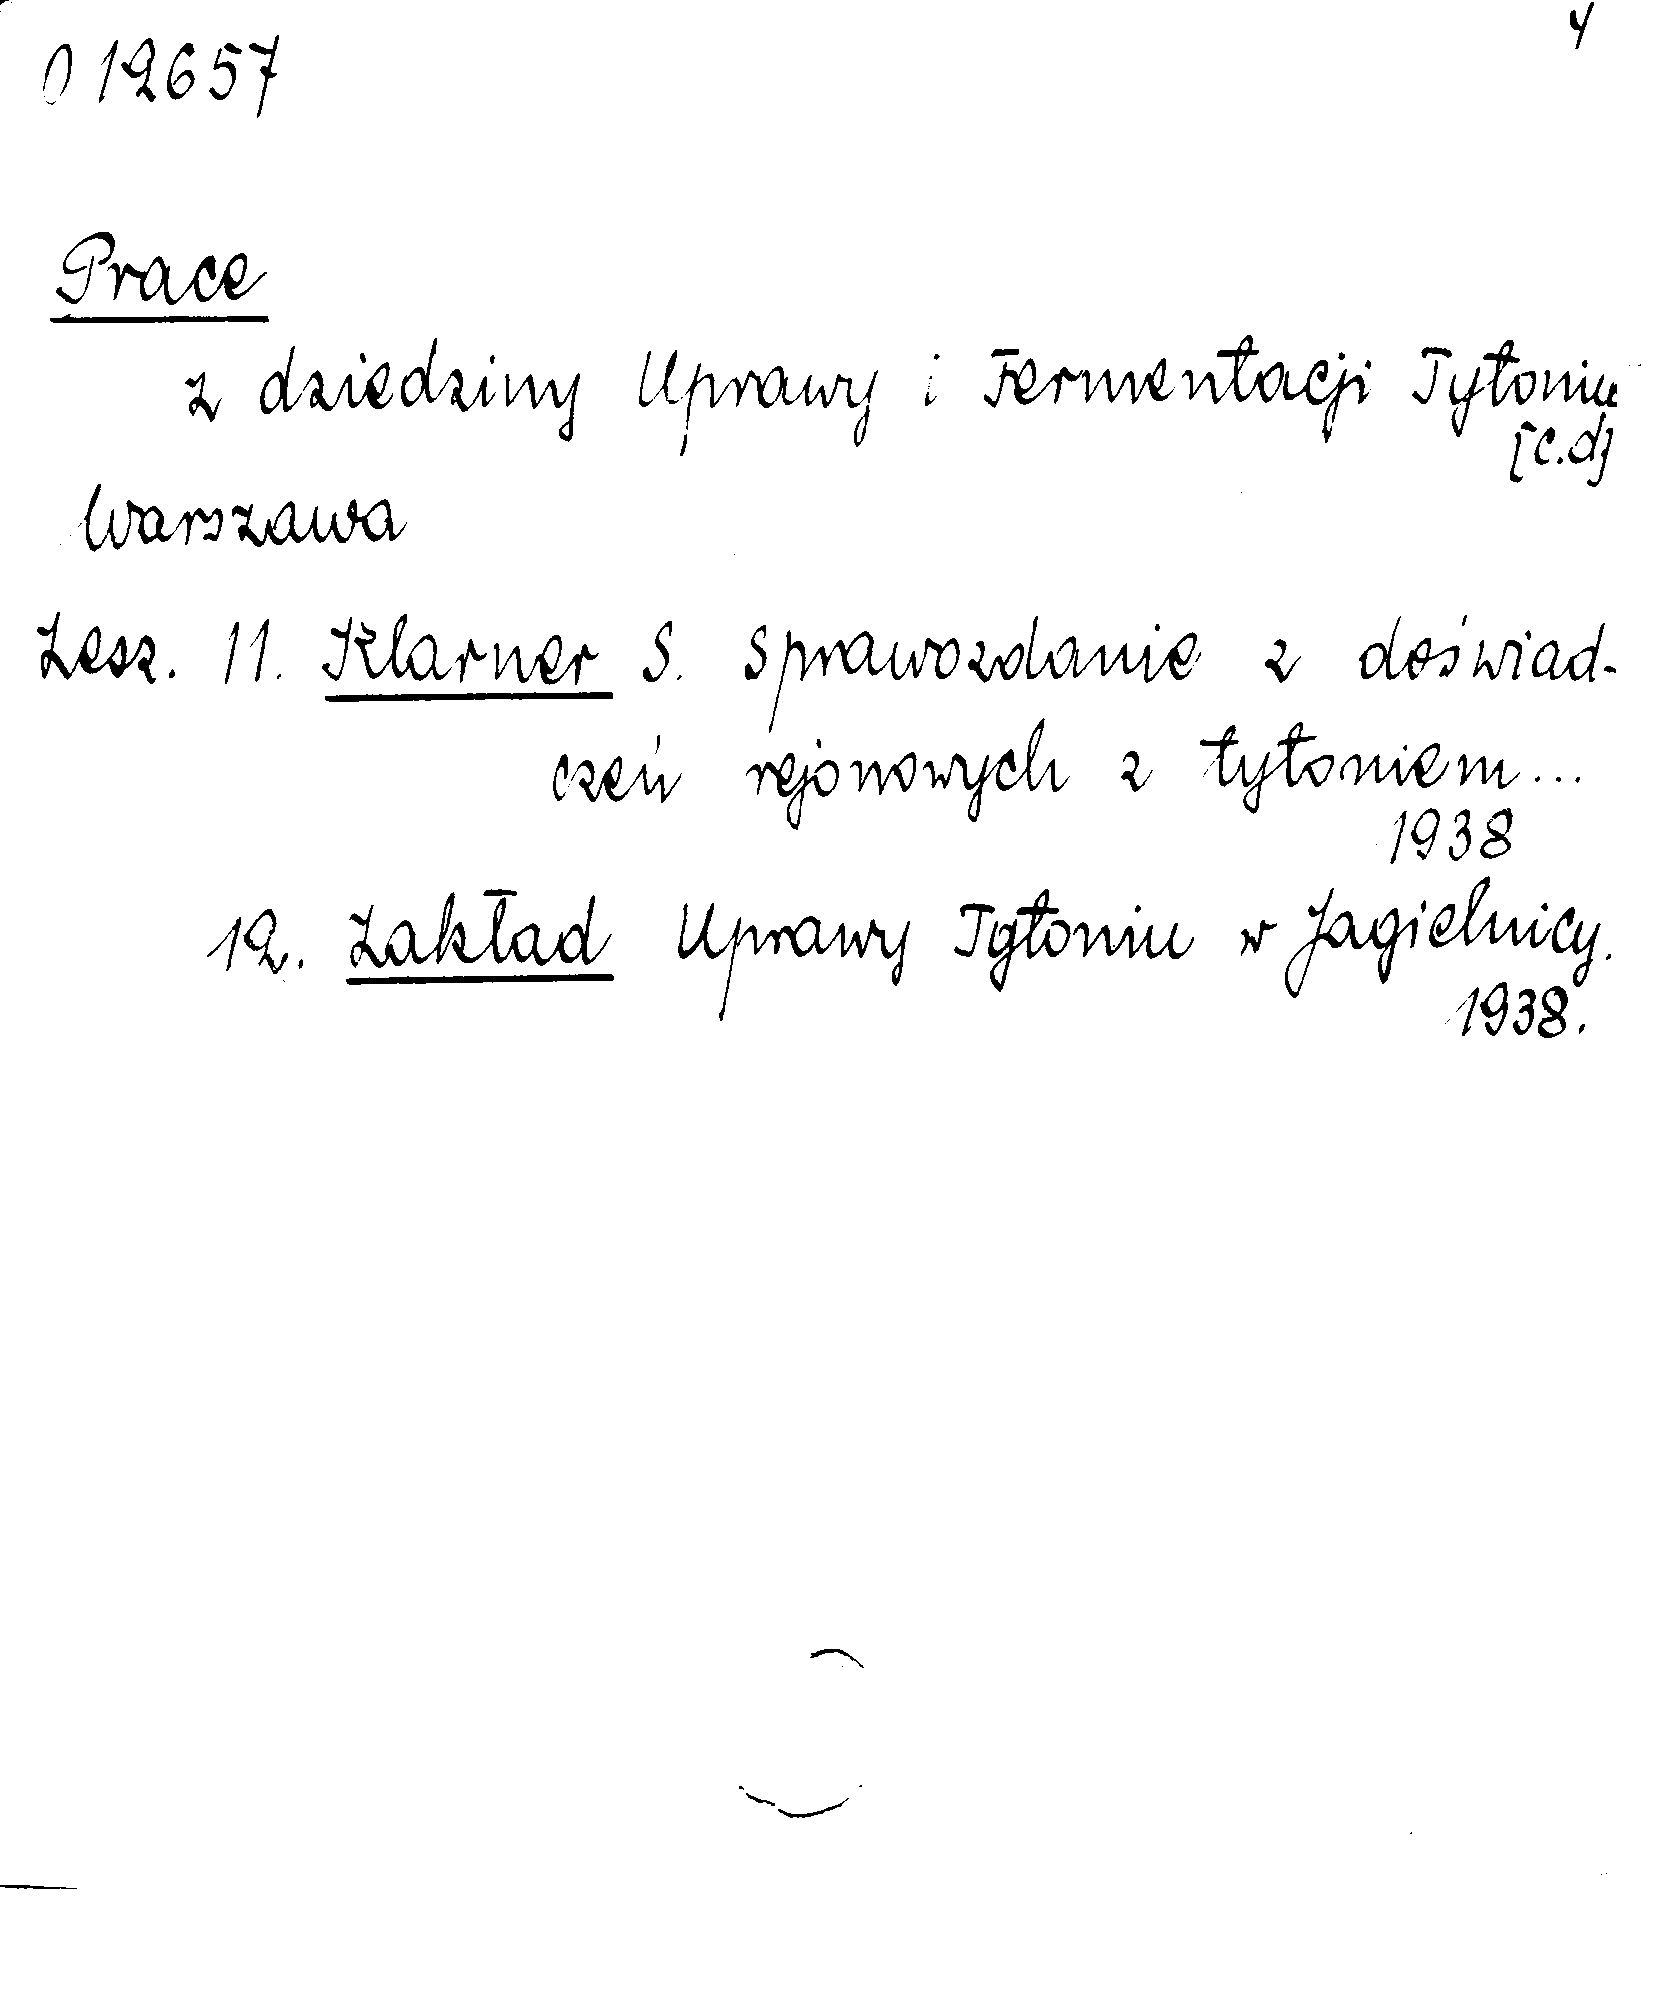 4
012657
Prace
z dziedziny Uprawy i Fermentacji Tytoniu
[c.d]
Warszawa
Zesz. 11. Klarner S. Sprawozdanie z doświad-
czeń rejonowych z tytoniem...
1938
12. Zakład Uprawy Tytoniu w Jagielnicy.
1938.